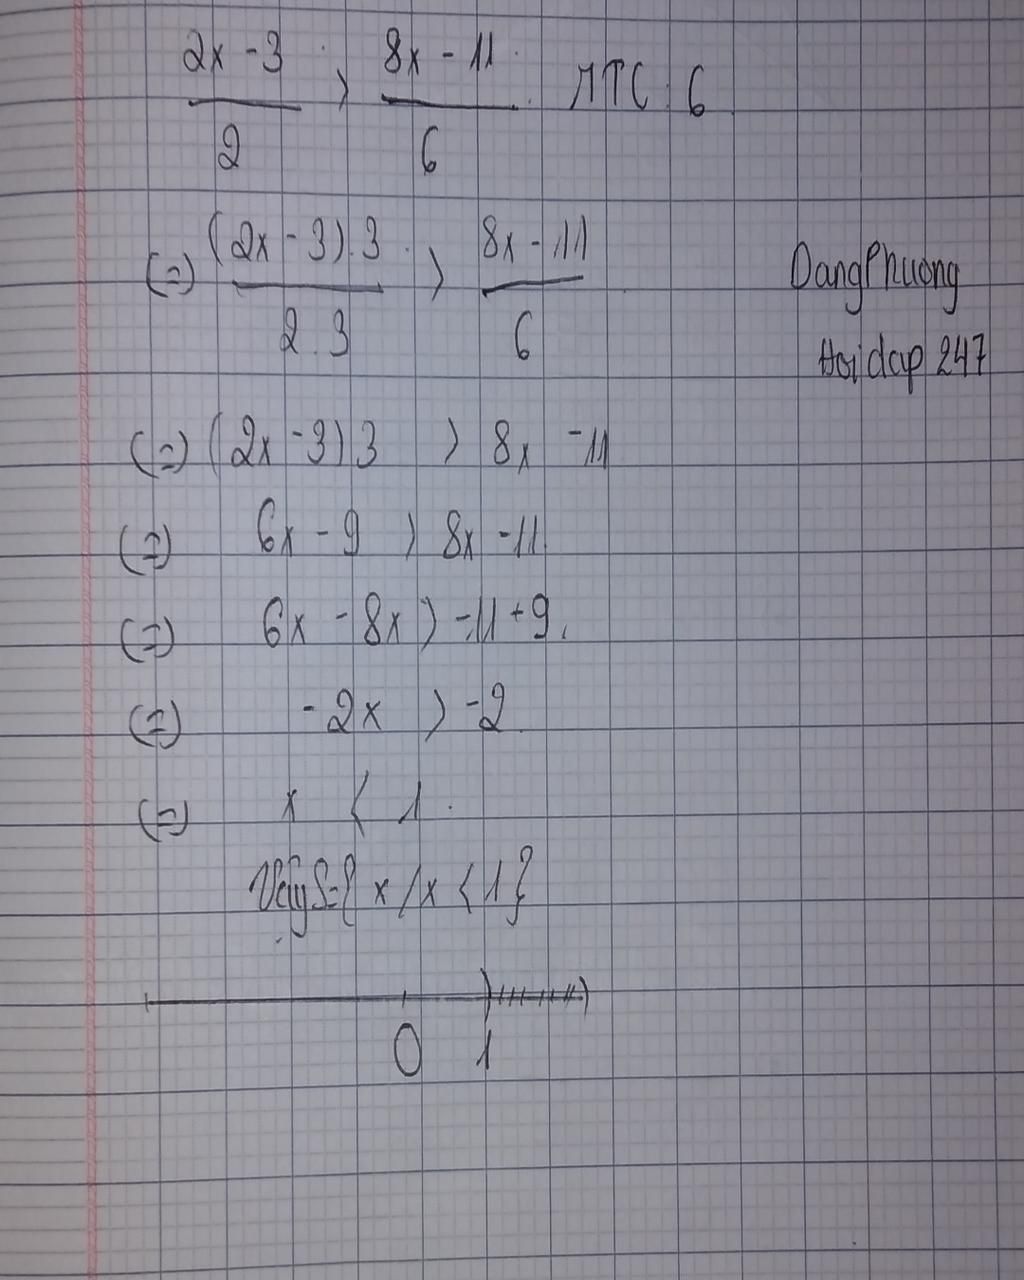 (2x - 3)/2 > (8x - 11)/6 MTC 6
(=) ((2x - 3).3)/(2.3) > (8x - 11)/6
DangPhuong
Hoidap 247
(=) (2x - 3) 3 > 8x - 11
(=) 6x - 9 > 8x - 11
(=) 6x - 8x > -11 + 9
(=) -2x > -2
(=) x < 1
Vậy S={ x / x < 1}
0 1